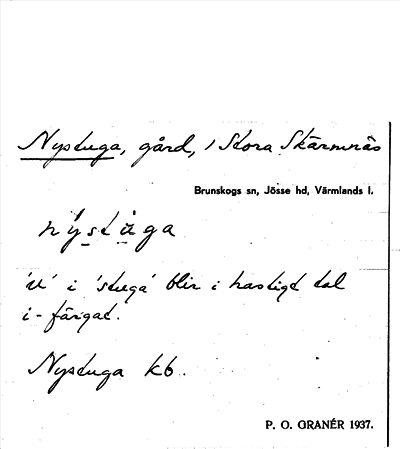 Nystuga, gård, i Stora Skärmnäs
Brunskogs sn, Jösse hd, Värmlands l.
nystuga
'u' i 'stuga' blir i hastigt tal
i-färgat.
Nystuga kb.
P. O. GRANÉR 1937.